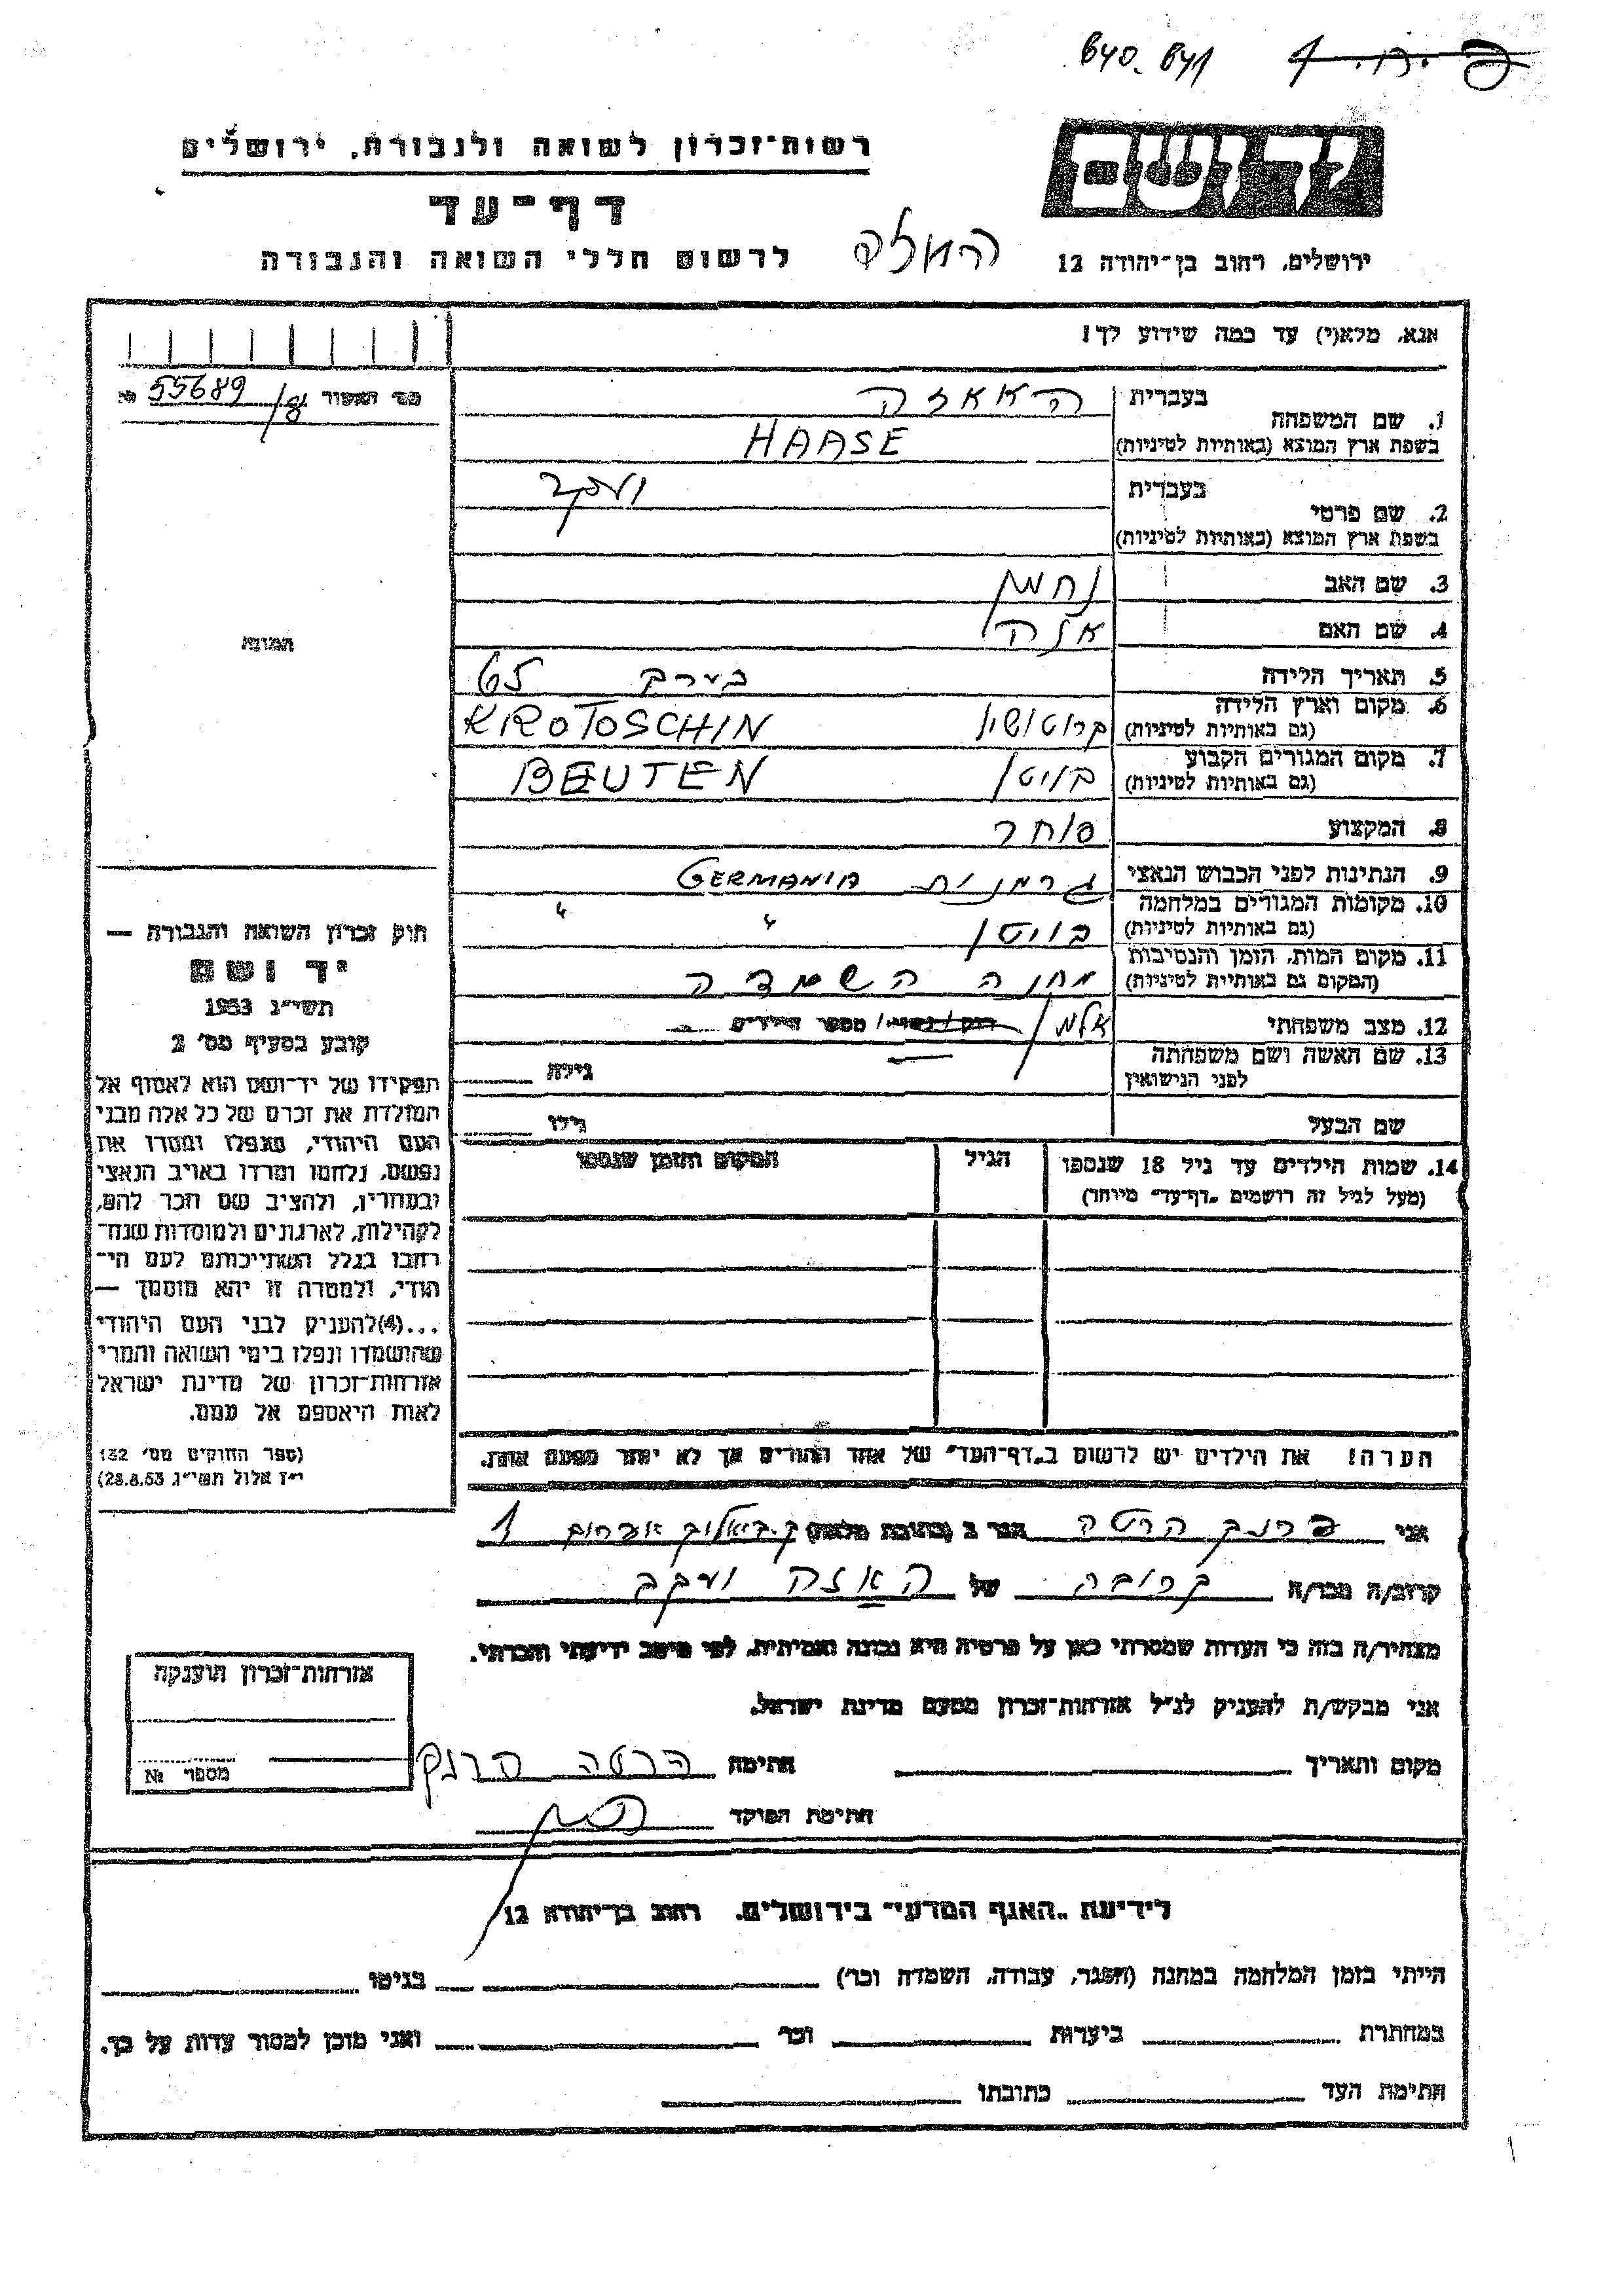 640-641
רשות־זכרון לשואה ולגבורה, ירושלים
יד ושם
דף־עד
לרשום חללי השואה והגבורה
ירושלים, רחוב בן־יהודה 12
אנא, מלא(י) עד כמה שידוע לך!
מס' האסור 55689/8 №
1. שם המשפחה
בעברית האאזה
בשפת ארץ המוצא (באותיות לטיניות) HAASE
2. שם פרטי
בעברית יעקב
בשפת ארץ המוצא (באותיות לטיניות)
3. שם האב נחמן
4. שם האם אזה
5. תאריך הלידה בערך 65
6. מקום וארץ הלידה
(גם באותיות לטיניות) קרוטושין KROTOSCHIN
7. מקום המגורים הקבוע
(גם באותיות לטיניות) בויטן BEUTEN
8. המקצוע סוחר
9. הנתינות לפני הכבוש הנאצי גרמנית GERMANIA
10. מקומות המגורים במלחמה
(גם באותיות לטיניות) בויטן " "
11. מקום המות, הזמן והנסיבות
(המקום גם באותיות לטיניות) מחנה השמדה
12. מצב משפחתי אלמן רווק/נשוי/ מספר הילדים
13. שם האשה ושם משפחתה
לפני הנישואין — גילה
שם הבעל גילו
14. שמות הילדים עד גיל 18 שנספו הגיל המקום והזמן שנספו
(מעל לגיל זה רושמים "דף־עד" מיוחד)
הערה! את הילדים יש לרשום ב"דף־העד" של אחד ההורים אך לא יותר מפעם אחת.
התמונה
חוק זכרון השואה והגבורה —
יד ושם
תשי"ג 1953
קובע בסעיף מס' 2
תפקידו של יד־ושם הוא לאסוף אל
המולדת את זכרם של כל אלה מבני
העם היהודי, שנפלו ומסרו את
נפשם, נלחמו ומרדו באויב הנאצי
ובעוזריו, ולהציב שם וזכר להם,
לקהילות, לארגונים ולמוסדות שנח־
רבו בגלל השתייכותם לעם הי־
הודי, ולמטרה זו יהא מוסמך —
...(4)להעניק לבני העם היהודי
שהושמדו ונפלו בימי השואה והמרי
אזרחות־זכרון של מדינת ישראל
לאות היאספם אל עמם.
(ספר החוקים מס' 132
י"ז אלול תשי"ג 28.8.53)
אני פרנק הרטה הגר ב (כתובת מלאה) ק. ביאליק אברהם 1
קרוב/ה מכר/ה קרובה של האזה יעקב
מצהיר/ה בזה כי העדות שמסרתי כאן על פרטיה היא נכונה ואמיתית, לפי מיטב ידיעתי והכרתי.
אני מבקש/ת להעניק לנ"ל אזרחות־זכרון מטעם מדינת ישראל.
מקום ותאריך חתימה הרטה פרנק
חתימת הפוקד
אזרחות־זכרון הוענקה
מספר №
לידיעת "האגף המדעי" בירושלים. רחוב בן־יהודה 12
הייתי בזמן המלחמה במחנה (הסגר, עבודה, השמדה וכו') בגיטו
במחתרת ביערות וכו' ואני מוכן למסור עדות על כך.
חתימת העד כתובתו